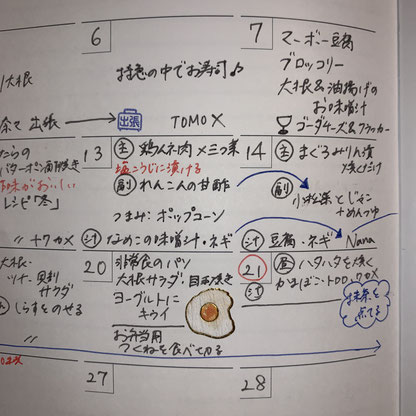 大根
6
特急の中でお寿司♪
7
マーボー豆腐
ブロッコリー
大根&油揚げの
お味噌汁
ゴーダチーズ&クラッカー
出張
出張
TOMO X
13
主 鶏ムネ肉×三つ葉
塩こうじに漬ける
副 れんこんの甘酢
つまみ:ポップコーン
汁 なめこの味噌汁・ネギ
14
主 まぐろみりん漬
焼くだけ
副
小松菜とじゃこ
+めんつゆ
汁 豆腐・ネギ
Nana
がおいしい
レシピ「冬」
〃 +ワカメ
20
非常食のパン
大根サラダ 目玉焼き
ヨーグルトに
キウイ
お弁当用
つくねを食べて切る
21
昼 ハタハタを焼く
かまぼこ・トロロ・ワカメ
汁
抹茶を
点てる
大根・
ツナー 貝割
サラダ
しらすのせる
〃
27
28